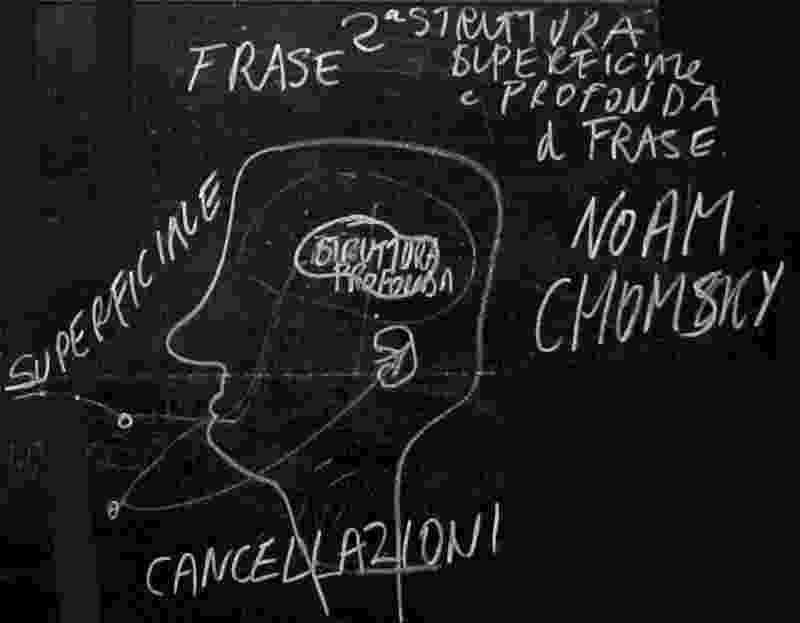 FRASE
2ª STRUTTURA
SUPERFICIALE
e PROFONDA
d FRASE.
SUPERFICIALE
STRUTTURA
PROFONDA
NOAM
CHOMSKY
CANCELLAZIONI